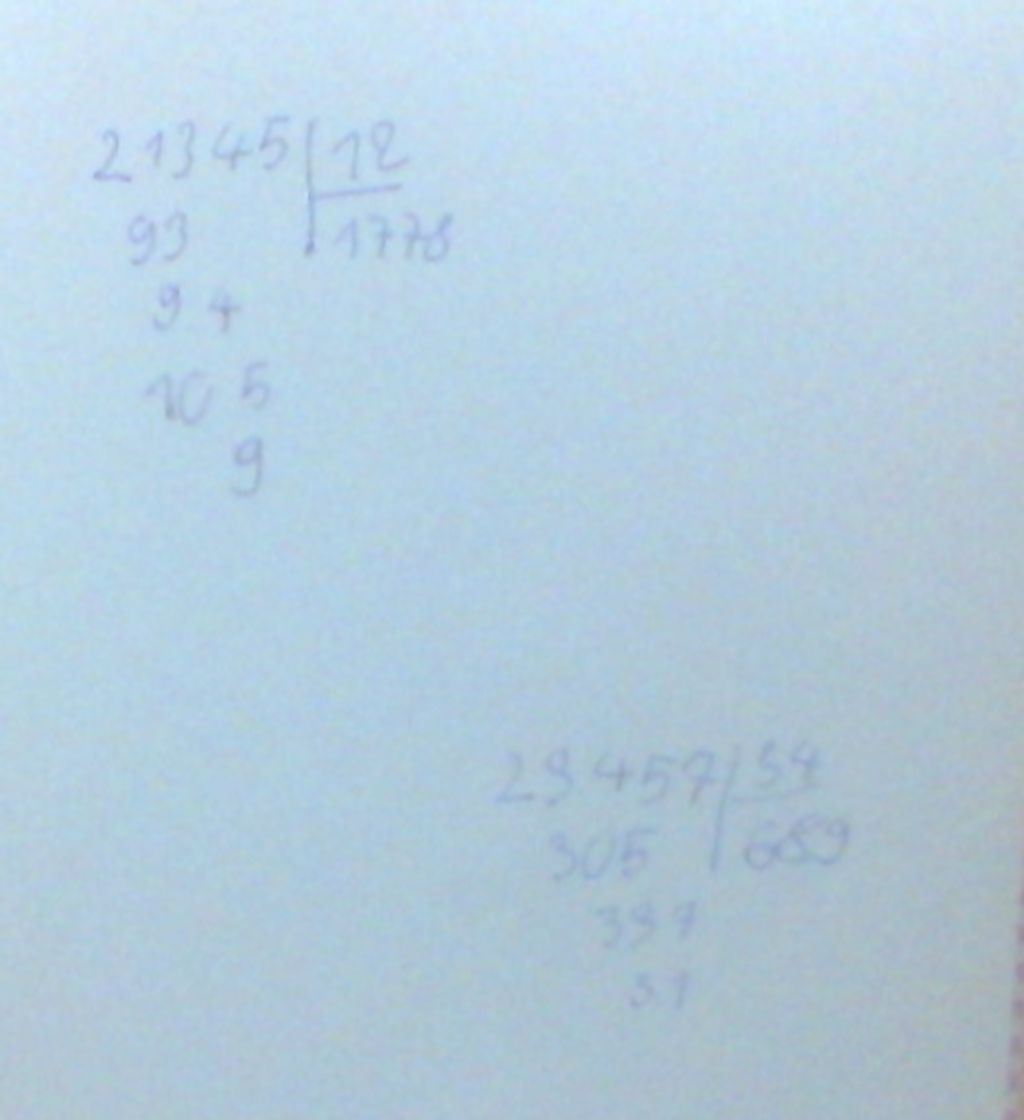 21345 12
93 1778
94
105
9
23457 34
305 689
337
31